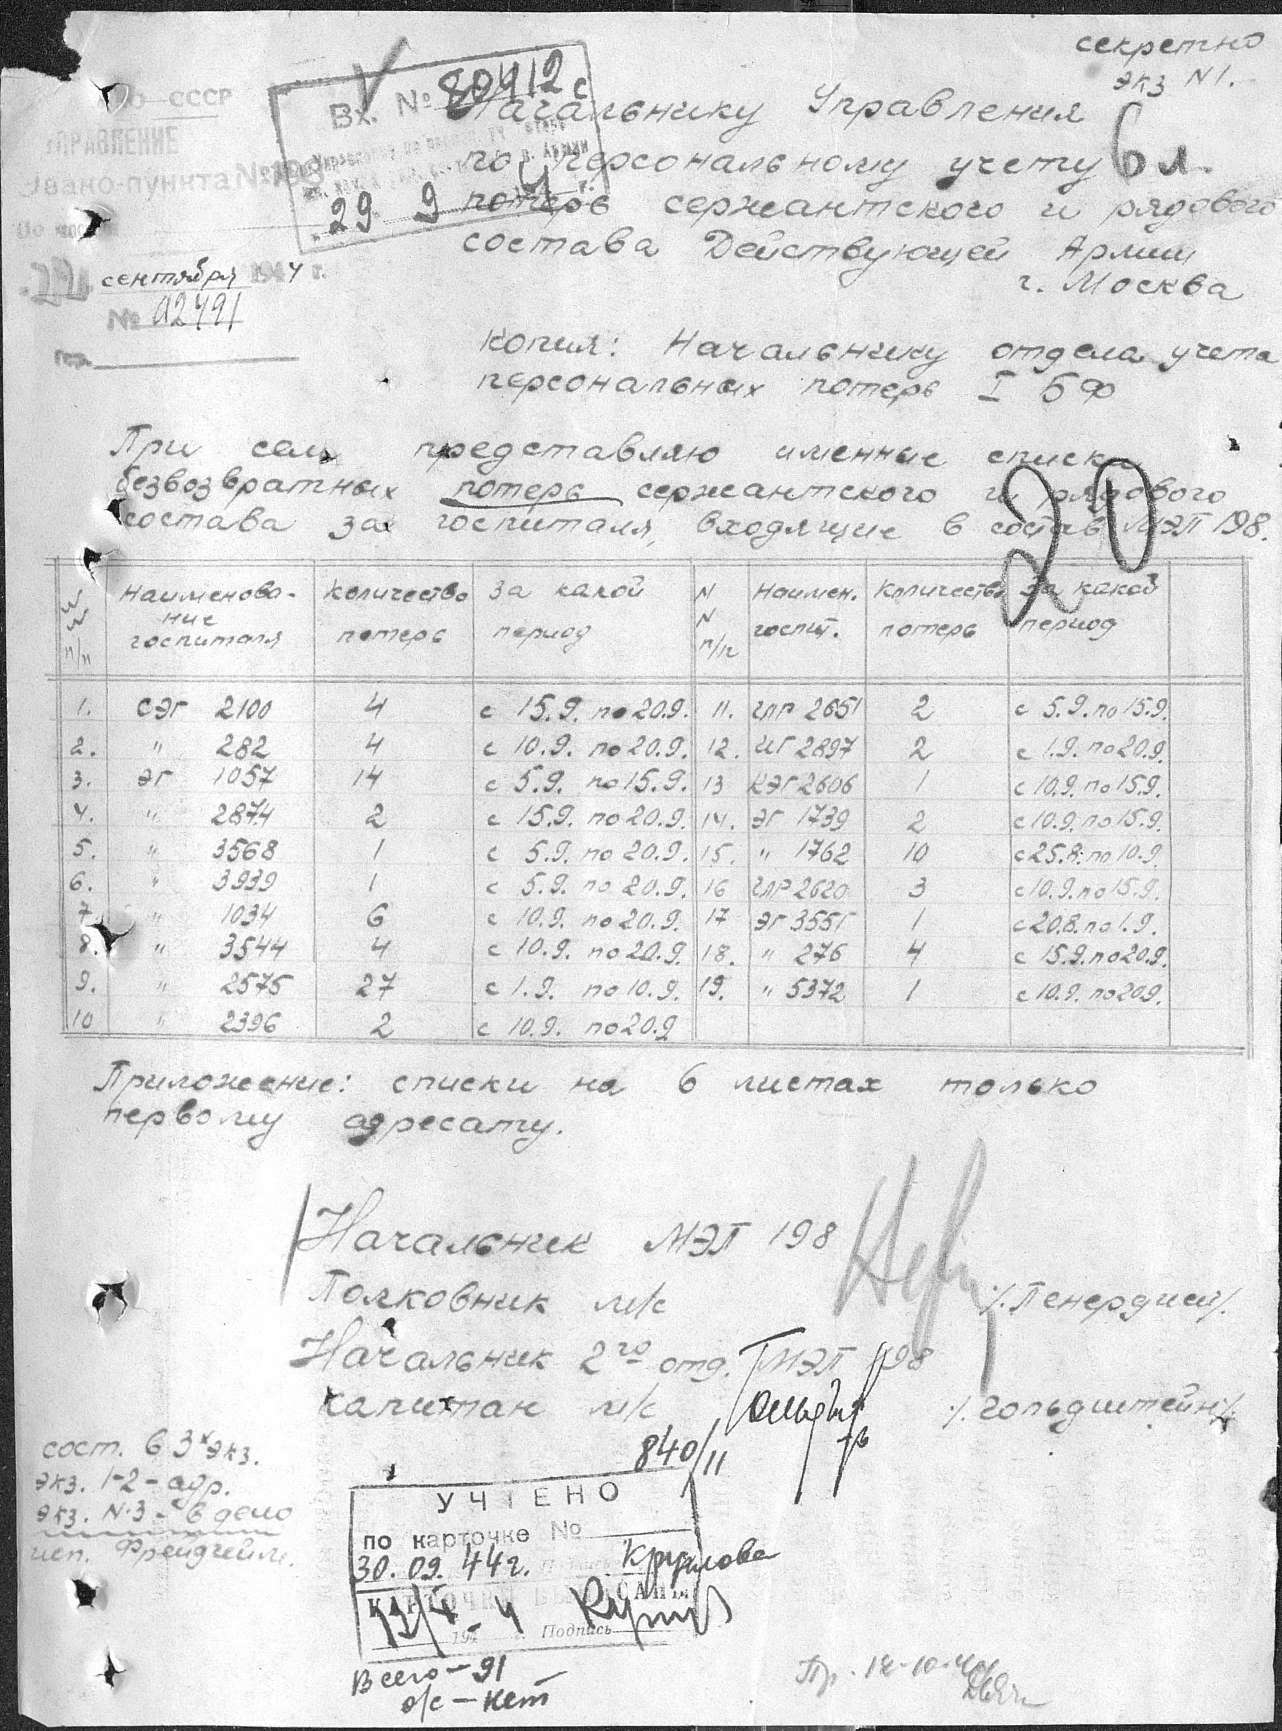 секретно
экз N1.
СССР
УПРАВЛЕНИЕ
Эвако-пункта №198
22 сентября 1944 г.
№ 02491
Вх. № 80412с
29 9 4 г.
Начальнику Управления
по персональному учету
потерь сержантского и рядового
состава Действующей Армии
г. Москва
6 л.
Копия: Начальнику отдела учета
персональных потерь I БФ
При сем представляю именные списки
безвозвратных потерь сержантского и рядового
состава за госпиталя, входящие в состав МЭП 198.
20
NN п/п | Наименование госпиталя | Количество потерь | За какой период | NN п/п | Наимен. госпит. | Количество потерь | За какой период
1. СЭГ 2100 4 с 15.9. по 20.9. 11. ГЛР 2651 2 с 5.9. по 15.9.
2. " 282 4 с 10.9. по 20.9. 12. ИГ 2897 2 с 1.9. по 20.9.
3. ЭГ 1057 14 с 5.9. по 15.9. 13 КЭГ 2606 1 с 10.9. по 15.9.
4. " 2874 2 с 15.9. по 20.9. 14. ЭГ 1739 2 с 10.9. по 15.9.
5. " 3568 1 с 5.9. по 20.9. 15. " 1762 10 с 25.8. по 10.9.
6. " 3939 1 с 5.9. по 20.9. 16 ГЛР 2620 3 с 10.9. по 15.9.
7. " 1034 6 с 10.9. по 20.9. 17 ЭГ 3551 1 с 20.8. по 1.9.
8. " 3544 4 с 10.9. по 20.9. 18. " 276 4 с 15.9. по 20.9.
9. " 2575 27 с 1.9. по 10.9. 19. " 5372 1 с 10.9. по 20.9.
10 " 2396 2 с 10.9. по 20.9
Приложение: списки на 6 листах только
первому адресату.
Начальник МЭП 198
Полковник м/с
Начальник 2го отд. МЭП 198
капитан м/с /. Гольдштейн/.
840/11
сост. в 3х экз.
экз. 1-2 - адр.
экз. N.3 - в дело
исп. Фрейдгейм.
УЧТЕНО
по карточке №
30.09.44г. Круглова
194 г. Подпись
Всего - 91
о/с - нет